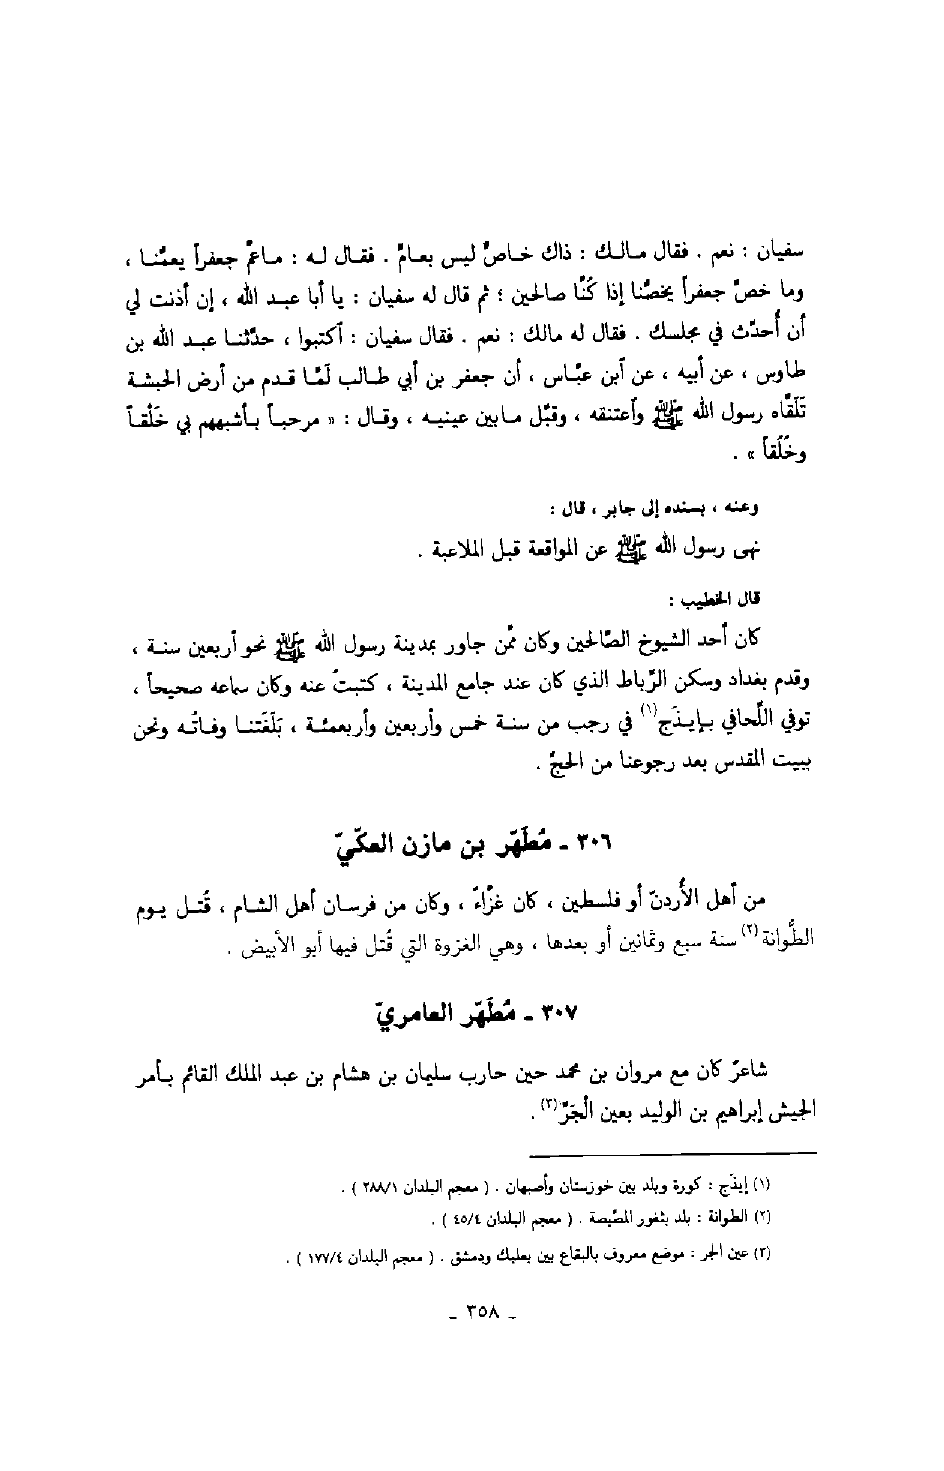 سفيان : نعم . فقال مالك : ذاك خاصٌّ ليس بعامٍّ . فقال له : ماعمَّ جعفراً يعمُّنا ،
وما خصَّ جعفراً يخصُّنا إذا كُنَّا صالحين ؛ ثم قال له سفيان : يا أبا عبد الله ، إن أذنت لي
أن أُحدِّث في مجلسك . فقال له مالك : نعم . فقال سفيان : أكتبوا ، حدَّثنا عبد الله بن
طاوس ، عن أبيه ، عن آبن عبَّاس ، أن جعفر بن أبي طالب لَمَّا قدم من أرض الحبشة
تَلَقَّاه رسول الله ﷺ وأعتنقه ، وقبَّل مابين عينيه ، وقال : « مرحباً بأشبههم بي خَلْقاً
وخُلُقاً » .
وعنه ، بسنده إلى جابر ، قال :
نهى رسول الله ﷺ عن المواقعة قبل الملاعبة .
قال الخطيب :
كان أحد الشيوخ الصَّالحين وكان ممَّن جاور بمدينة رسول الله ﷺ نحو أربعين سنة ،
وقدم بغداد وسكن الرِّباط الذي كان عند جامع المدينة ، كتبتُ عنه وكان سماعه صحيحاً ،
توفي اللِّحافي بإيذَج(١) في رجب من سنة خمس وأربعين وأربعمئة ، بَلَغَتنا وفاتُه ونحن
ببيت المقدس بعد رجوعنا من الحجِّ .
٣٠٦ ـ مُطَهّر بن مازن العكّيّ
من أهل الأُردنّ أو فلسطين ، كان غزَّاءً ، وكان من فرسان أهل الشام ، قُتل يوم
الطُّوانة(٢) سنة سبع وثمانين أو بعدها ، وهي الغزوة التي قُتل فيها أبو الأبيض .
٣٠٧ ـ مُطَهّر العامريّ
شاعرٌ كان مع مروان بن محمد حين حارب سليمان بن هشام بن عبد الملك القائم بأمر
الجيش إبراهيم بن الوليد بعين الْجَرِّ(٣) .
(١) إيذَج : كورة وبلد بين خوزستان وأصبهان . ( معجم البلدان ٢٨٨/١ ) .
(٢) الطوانة : بلد بثغور المصِّيصة . ( معجم البلدان ٤٥/٤ ) .
(٣) عين الجر : موضع معروف بالبقاع بين بعلبك ودمشق . ( معجم البلدان ١٧٧/٤ ) .
ـ ٣٥٨ ـ